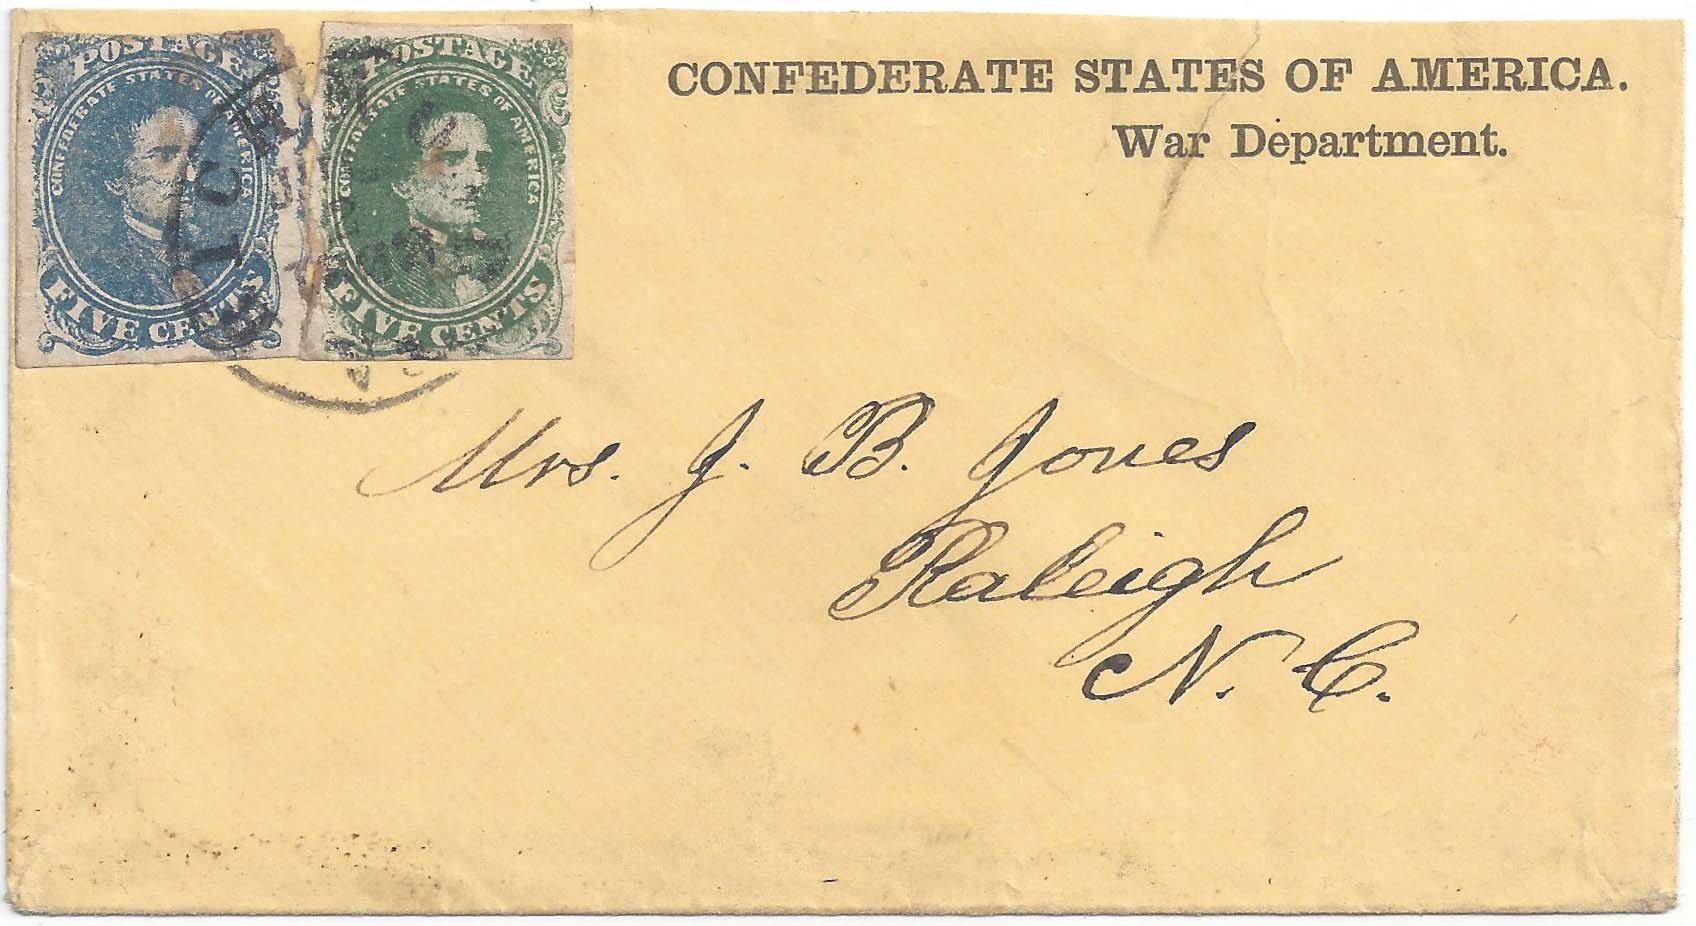 POSTAGE
CONFEDERATE STATES OF AMERICA
FIVE CENTS
POSTAGE
CONFEDERATE STATES OF AMERICA
FIVE CENTS
CONFEDERATE STATES OF AMERICA.
War Department.
Mrs. J. B. Jones
Raleigh
N. C.